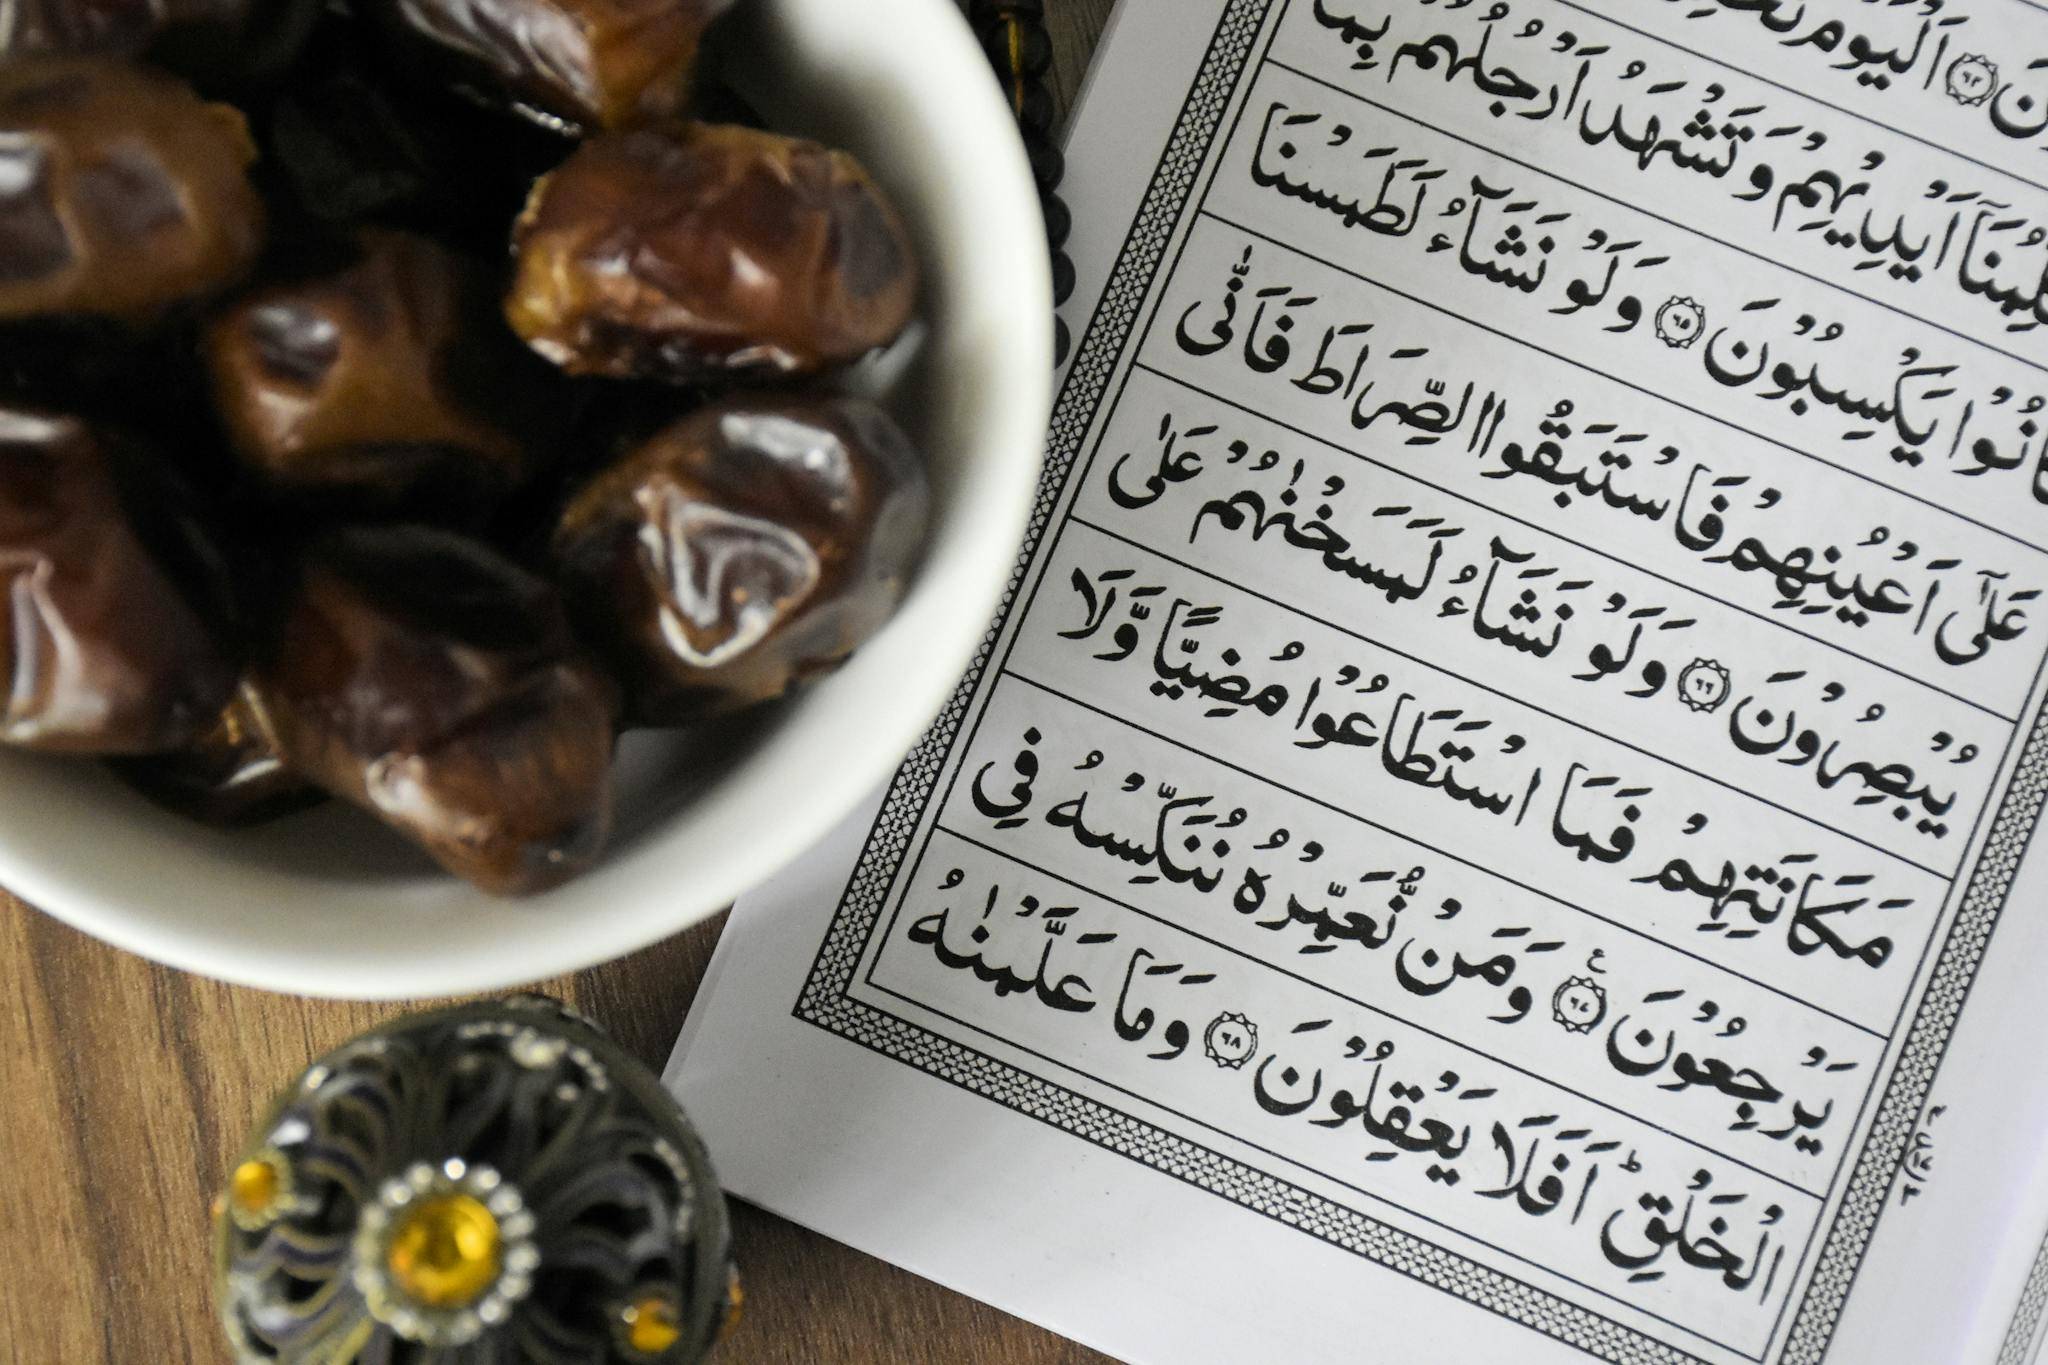 اَلْيَوْمَ
اَيْدِيْهِمْ وَتَشْهَدُ اَرْجُلُهُمْ بِمَا
كَانُوْا يَكْسِبُوْنَ ﴿٦٥﴾ وَلَوْ نَشَآءُ لَطَمَسْنَا
عَلٰٓى اَعْيُنِهِمْ فَاسْتَبَقُوا الصِّرَاطَ فَاَنّٰى
يُبْصِرُوْنَ ﴿٦٦﴾ وَلَوْ نَشَآءُ لَمَسَخْنٰهُمْ عَلٰى
مَكَانَتِهِمْ فَمَا اسْتَطَاعُوْا مُضِيًّا وَّلَا
يَرْجِعُوْنَ ﴿٦٧﴾ ع وَمَنْ نُّعَمِّرْهُ نُنَكِّسْهُ فِى
الْخَلْقِؕ اَفَلَا يَعْقِلُوْنَ ﴿٦٨﴾ وَمَا عَلَّمْنٰهُ